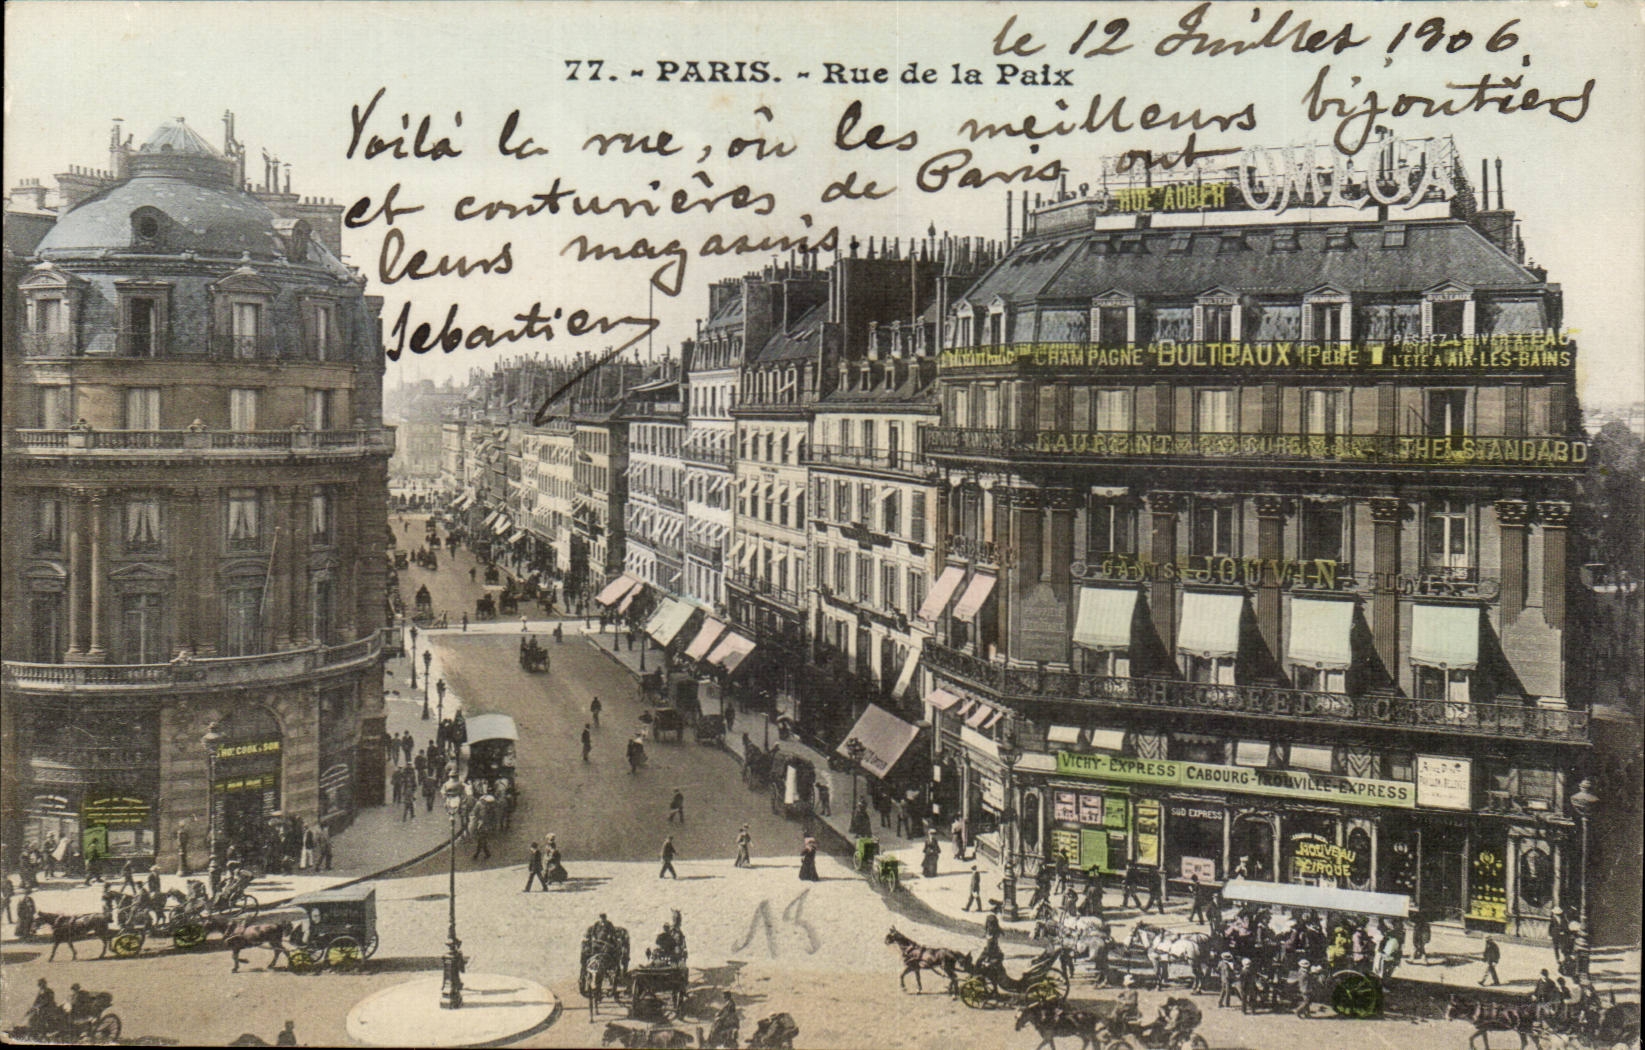 le 12 Juillet 1906.
77. - PARIS. - Rue de la Paix
Voilà la rue, où les meilleurs bijoutiers
et couturières de Paris ont
leurs magasins.
Sebastien
OMEGA
RUE AUBER
CHAMPAGNE BULTEAUX CHAMPAGNE BULTEAUX
CHAMPAGNE BULTEAUX PERE
PASSEZ L'HIVER A PAU
L'ÉTÉ A AIX-LES-BAINS
LAURENT THE STANDARD
GANTS JOUVIN
THOS COOK & SON
VICHY-EXPRESS CABOURG-TROUVILLE-EXPRESS
SUD EXPRESS
NOUVEAU
CIRQUE
18